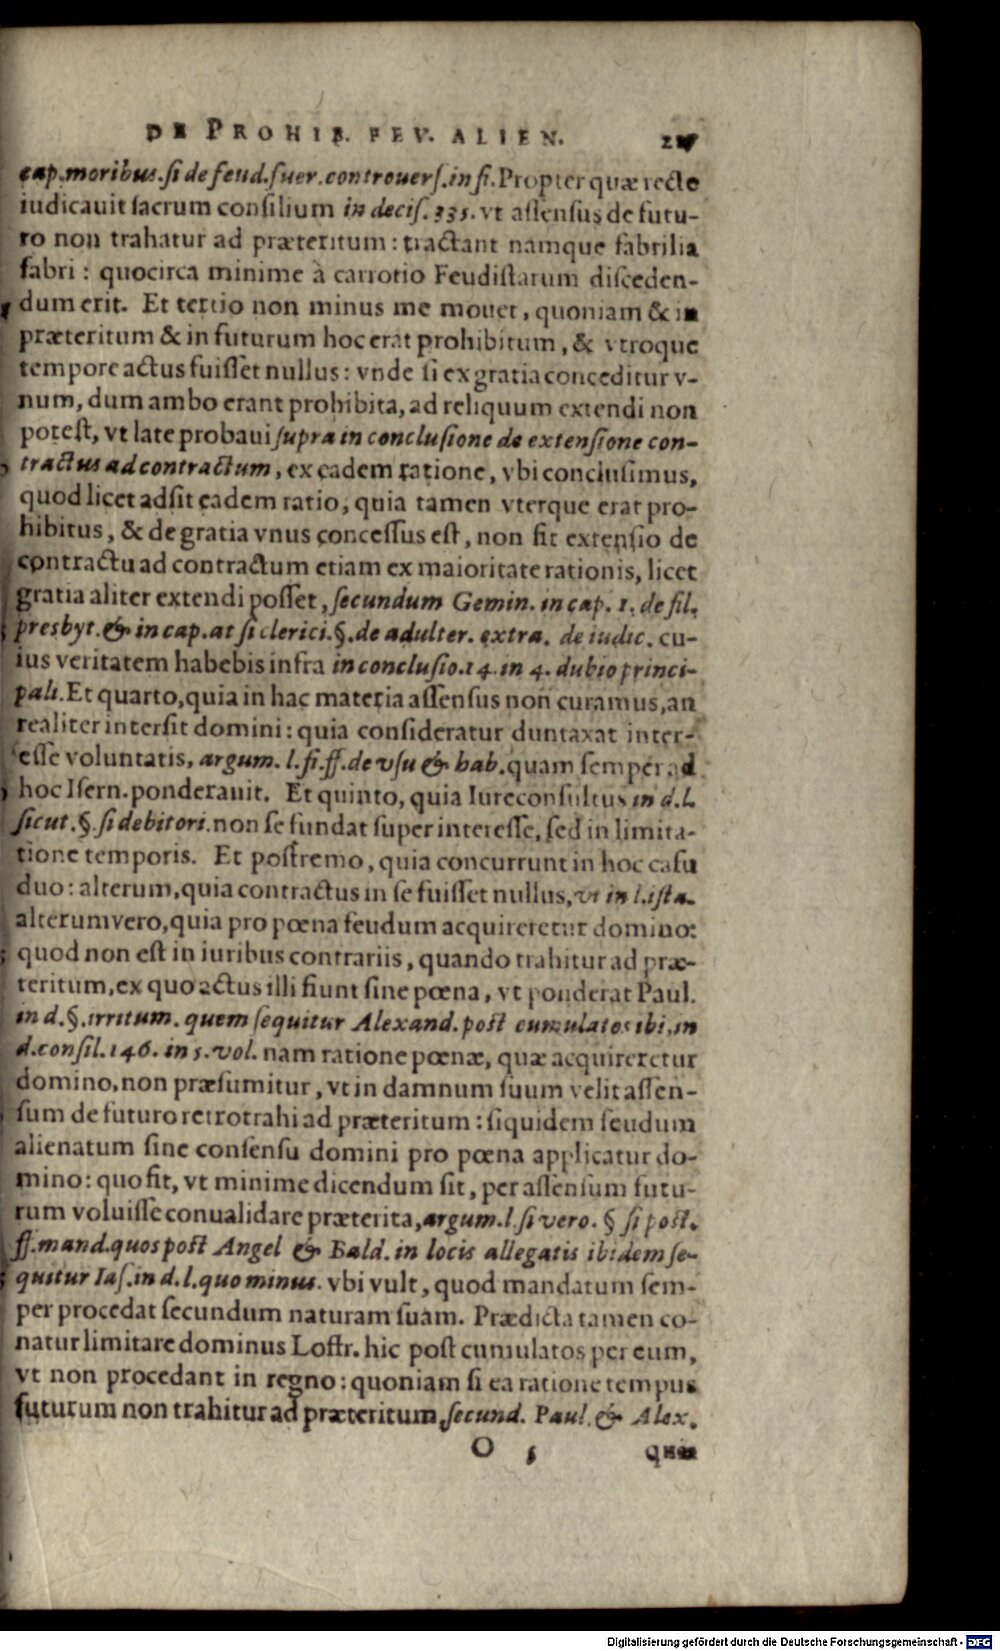 DE PROHIB. FEV. ALIEN.
cap. moribus. si de feud. fuer. controuers. in fi. Propter quæ recte
iudicauit sacrum consilium in decis. 335. vt assensus de futu-
ro non trahatur ad præteritum: tractant namque fabrilia
fabri: quocirca minime à carrotio Feudistarum disceden-
dum erit. Et tertio non minus me mouet, quoniam & in
præteritum & in futurum hoc erat prohibitum, & vtroque
tempore actus fuisset nullus: vnde si ex gratia conceditur v-
num, dum ambo erant prohibita, ad reliquum extendi non
potest, vt late probaui supra in conclusione de extensione con-
tractus ad contractum, ex eadem ratione, vbi conclusimus,
quod licet adsit eadem ratio, quia tamen vterque erat pro-
hibitus, & de gratia vnus concessus est, non fit extensio de
contractu ad contractum etiam ex maioritate rationis, licet
gratia aliter extendi posset, secundum Gemin. in cap. 1. de fil.
presbyt. & in cap. at si clerici. §. de adulter. extra. de iudic. cu-
ius veritatem habebis infra in conclusio. 14. in 4. dubio princi-
pali. Et quarto, quia in hac materia assensus non curamus, an
realiter intersit domini: quia consideratur duntaxat inter-
esse voluntatis, argum. l. fi. ff. de vsu & hab. quam semper ad
hoc Isern. ponderauit. Et quinto, quia Iureconsultus in d. l.
sicut. §. si debitori. non se fundat super interesse, sed in limita-
tione temporis. Et postremo, quia concurrunt in hoc casu
duo: alterum, quia contractus in se fuisset nullus, vt in l. ista.
alterum vero, quia pro pœna feudum acquireretur domino:
quod non est in iuribus contrariis, quando trahitur ad præ-
teritum, ex quo actus illi fiunt sine pœna, vt ponderat Paul.
in d. §. irritum. quem sequitur Alexand. post cumulatos ibi, in
d. consil. 146. in 5. vol. nam ratione pœnæ, quæ acquireretur
domino, non præsumitur, vt in damnum suum velit assen-
sum de futuro retrotrahi ad præteritum: siquidem feudum
alienatum sine consensu domini pro pœna applicatur do-
mino: quo fit, vt minime dicendum sit, per assensum futu-
rum voluisse conualidare præterita, argum. l. si vero. § si post.
ff. mand. quos post Angel & Bald. in locis allegatis ibidem se-
quitur Ias. in d. l. quo minus. vbi vult, quod mandatum sem-
per procedat secundum naturam suam. Prædicta tamen co-
natur limitare dominus Loffr. hic post cumulatos per eum,
vt non procedant in regno: quoniam si ea ratione tempus
futurum non trahitur ad præteritum, secund. Paul & Alex.
O 5
Digitalisierung gefördert durch die Deutsche Forschungsgemeinschaft - DFG